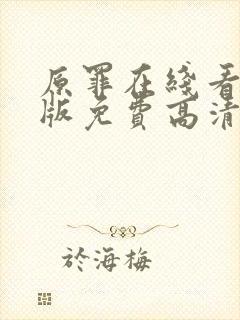 原罪在綫看
版免費高清
於海梅